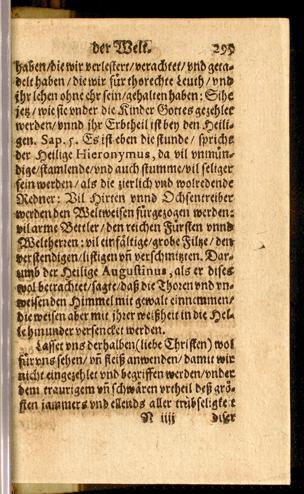 der Welt. 295
haben/die wir verlestert/verachtet/vnd geta-
delt haben/die wir für thorechte Leuth/vnd
jhr lehen ohne ehr sein/gehalten haben: Sihe
jetz/wie sie vnder die Kinder Gottes gezehlet
werden/vnnd jhr Erbtheil ist bey den Heili-
gen. Sap. 5. Es ist eben die stunde/sprichs
der Heilige Hieronymus, da vil vnmün-
dige/stamlende/vnd auch stumme/vil seliger
sein werden/als die zierlich vnd wolredende
Redner: Vil Hirten vnnd Ochsentreiber
werden den Weltweisen fürgezogen werden:
vil arme Bettler/den reichen Fürsten vnnd
Weltherren: vil einfältige/grobe Filtze/den
verstendigen/listigen vñ verschmitzten. Dar-
umb der Heilige Augustinus, als er dises
wol betrachtet/sagte/daß die Thoren vnd vn-
weisenden Himmel mit gewalt einnemmen/
die weisen aber mit jhrer weißheit in die Hel-
le hinunder versencket werden.
Lasset vns derhalben (liebe Christen) wol
für vns sehen/vñ fleiß anwenden/damit wir
nicht eingezehlet vnd begriffen werden/vnder
dem traurigem vñ schwären vrtheil deß grö-
sten jammers vnd ellends aller trübseligkeit
N iiij diser